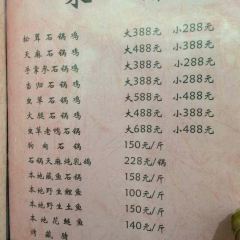 松茸石锅鸡 大388元 小288元
天麻石锅鸡 大388元 小288元
手掌参石锅鸡 大488元 小388元
当归石锅鸡 大388元 小288元
虫草石锅鸡 大588元 小488元
大腿石锅鸡 大488元 小388元
虫草老鸭石锅 大688元 小488元
狗肉石锅 150元/斤
石锅天麻炖乳鸽 228元/锅
本地藏鱼石锅 158元/斤
本地野生鲤鱼 100元/斤
本地野生土鱼 150元/斤
本地花鲢鱼 140元/斤
烤藏猪